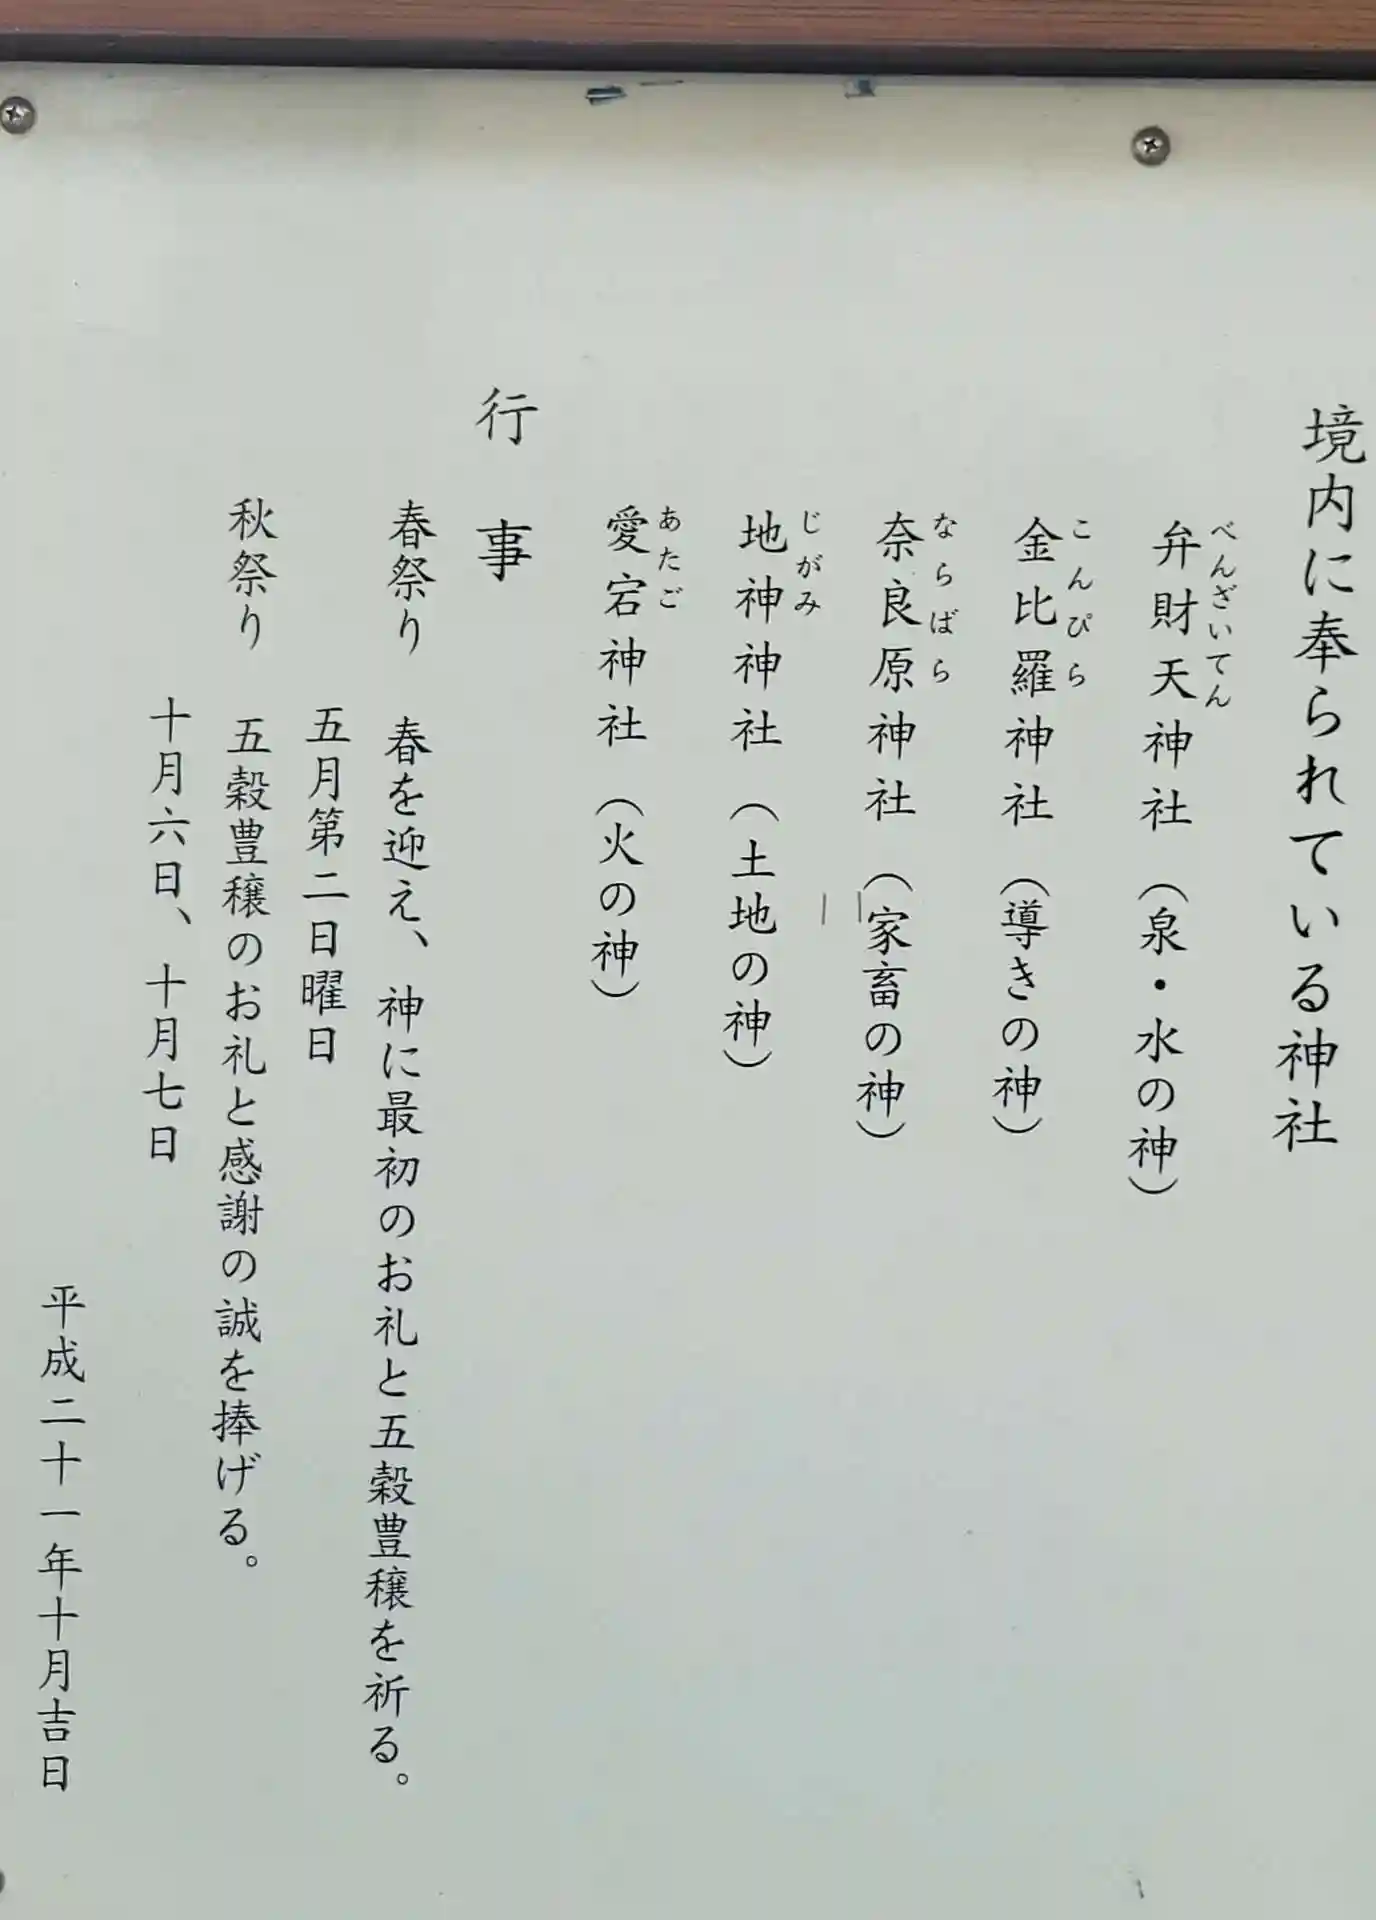 境内に奉られている神社
弁財天神社（泉・水の神）
べんざいてん
金比羅神社（導きの神）
こんぴら
奈良原神社（家畜の神）
ならばら
地神神社（土地の神）
じがみ
愛宕神社（火の神）
あたご
行事
春祭り 春を迎え、神に最初のお礼と五穀豊穣を祈る。
五月第二日曜日
秋祭り 五穀豊穣のお礼と感謝の誠を捧げる。
十月六日、十月七日
平成二十一年十月吉日